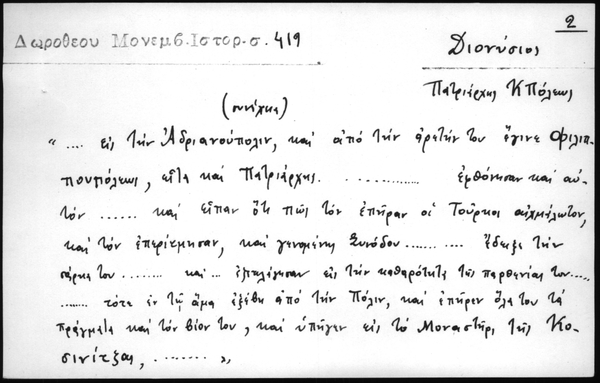 2
Δωροθεου Μονεμβ. Ιστορ. σ. 419
Διονύσιος
Πατριάρχης ΚΠόλεως
(συνέχεια)
«.... εις την Αδριανούπολιν, και από την αρετήν του έγινε Φιλιπ-
πουπόλεως, είτα και Πατριάρχης. ............. εφθόνησαν και αυ-
τόν ...... και είπαν ότι πως τον επήραν οι Τούρκοι αιχμάλωτον,
και τον επερίτμησαν, και γενομένης Συνόδου ....... .... έδειξε την
σάρκα του ........ και ... εξεπλάγησαν εις την καθαρότητα της παρθενίας του.....
........ τότε εν τω άμα εξέβη από την Πόλιν, και επήρεν όλα του τα
πράγματα και τον βίον του, και υπήγεν εις το Μοναστήρι της Κο-
σινίτζας, ........ »,